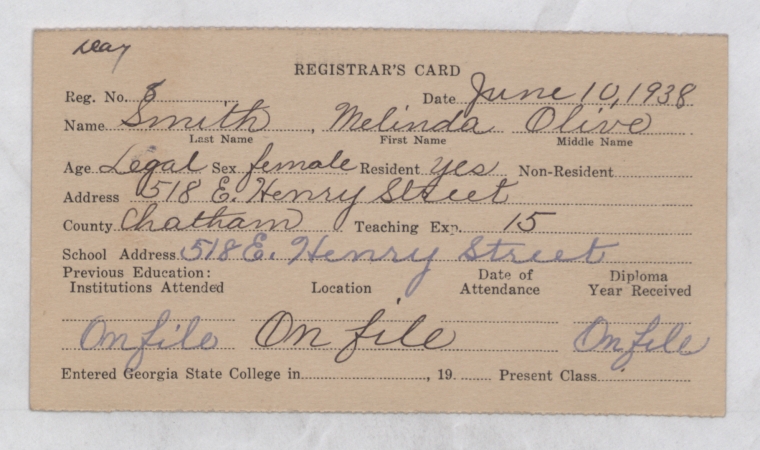 Day
REGISTRAR'S CARD
Reg. No. 8 Date June 10, 1938
Name Smith, Melinda Olive
Last Name First Name Middle Name
Age Legal Sex female Resident yes Non-Resident
Address 518 E. Henry Street
County Chatham Teaching Exp. 15
School Address 518 E. Henry Street
Previous Education: Date of Diploma
Institutions Attended Location Attendance Year Received
On file On file On file
Entered Georgia State College in , 19 Present Class